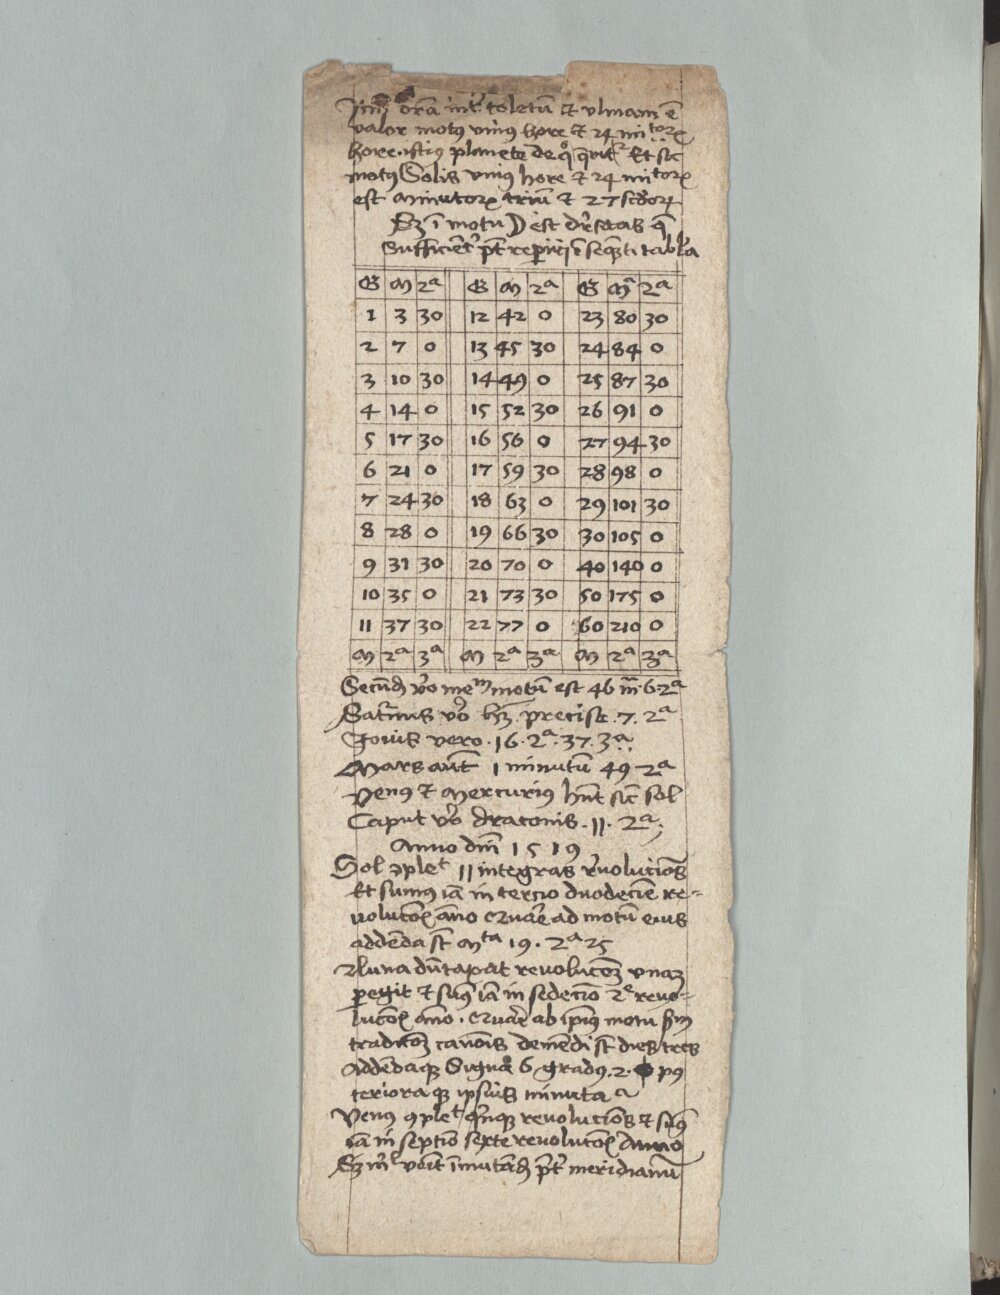 Itm̄ dr̄a int̄ toletū et vlmam ē
valor motꝯ vniꝯ hore et 24 mi͞torꝝ
hore istiꝯ planete de q͛ q̄rit᷑ Et sic
motꝯ Solis vniꝯ hore et 24 mi͞torꝝ
est minutorꝝ triū et 27 sc̄dorꝝ
Sꝫ ī motu ☽ est dr̄sitas q̄
sufficiēt᷑ pt̄ reperiri ī seq̄nti tabl̄a
G M 2ª G M 2ª G M̄ 2ª
1 3 30 12 42 0 23 80 30
2 7 0 13 45 30 24 84 0
3 10 30 14 49 0 25 87 30
4 14 0 15 52 30 26 91 0
5 17 30 16 56 0 27 94 30
6 21 0 17 59 30 28 98 0
7 24 30 18 63 0 29 101 30
8 28 0 19 66 30 30 105 0
9 31 30 20 70 0 40 140 0
10 35 0 21 73 30 50 175 0
11 37 30 22 77 0 60 210 0
M 2ª 3ª M 2ª 3ª M 2ª 3ª
Secūdꝫ v̊o me᷑m motū est 46 m̄ . 6 . 2ª
Saturnus v̊o hꝫ precise . 7 . 2ª
Jouis vero . 16 . 2ª . 37 . 3ª .
Mars aūt 1 minutū 49 2ª
Venꝯ et Mercuriꝯ hn̄t sic sol
Caput v̊o draconis . 11 . 2ª .
Anno dm̄ 1519
Sol ꝯplet 11 integras r̄uolucio͞es
Et sumꝯ iā in tercio duodecie re-
uoluco͞is an̄o ad motū eius
addēda st̄ Mta 19 . 2ª 25
Luna dūtaxat reuoluco͞em vnam
pegit et sumꝯ iā in sedecio 2e reuo-
luco͞is an̄o . ab ipiꝯ motu
tradico͞em cano͞is demēdi st̄ dies tres
addēdaqꝫ Signa 6 gradꝯ . 2 . pꝯ
terioraqꝫ ipsius minuta
Venꝯ ꝯplet qinqꝫ reuolucio͞es et sumꝯ
iā in septio sexte reuoluco͞is Anno
Sꝫ venit īmutādꝫ pt̄ meridianū